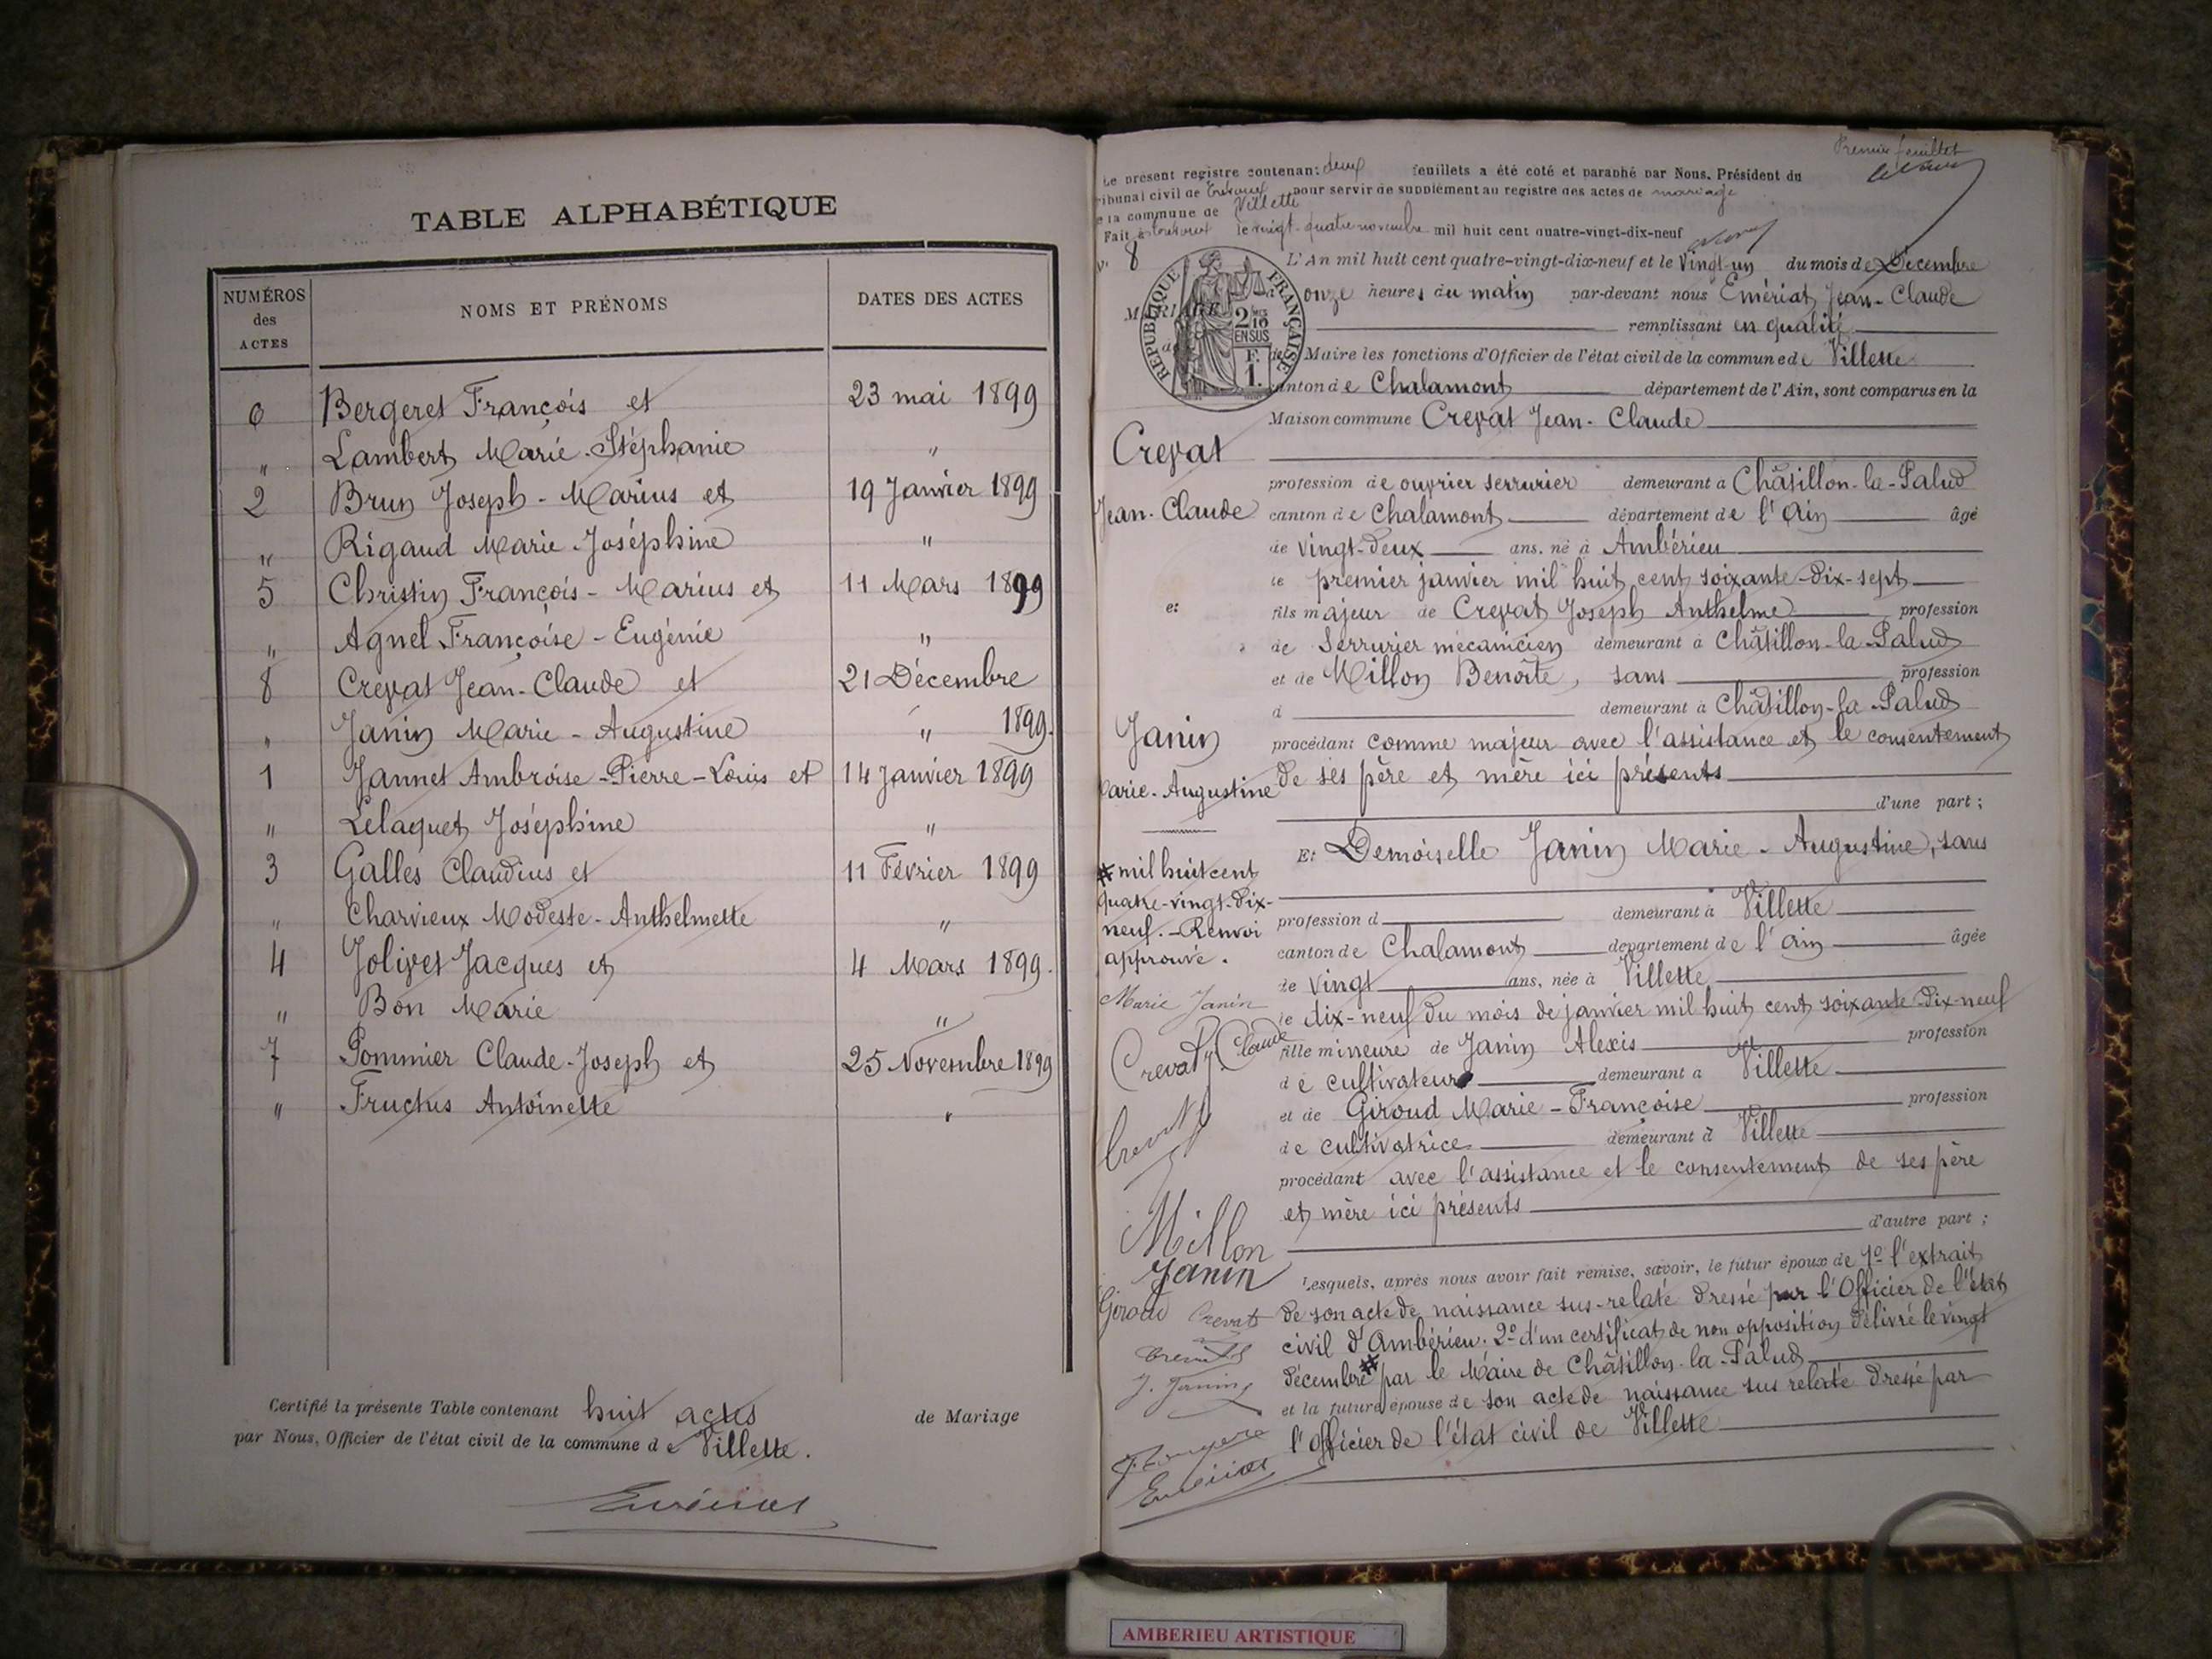 TABLE ALPHABÉTIQUE
NUMÉROS des ACTES
NOMS ET PRÉNOMS
DATES DES ACTES
6 Bergeret François et 23 mai 1899
" Lambert Marie-Stéphanie "
2 Brun Joseph-Marius et 19 Janvier 1899
" Rigaud Marie Joséphine "
5 Christin François-Marius et 11 Mars 1899
" Agnel Françoise-Eugénie "
8 Crevat Jean-Claude et 21 Décembre
" Janin Marie-Augustine " 1899.
1 Jannet Ambroise-Pierre-Louis et 14 Janvier 1899
" Lelaquet Joséphine "
3 Galles Claudius et 11 Février 1899
" Charvieux Modeste-Anthelmette "
4 Jolivet Jacques et 4 Mars 1899.
" Bon Marie "
7 Pommier Claude-Joseph et 25 Novembre 1899
" Fructus Antoinette "
Certifié la présente Table contenant huit actes de Mariage
par Nous, Officier de l'état civil de la commune de Villette.
Emériat
Premier feuillet
Le présent registre contenant deux feuillets a été coté et paraphé par Nous, Président du
Tribunal civil de Trévoux pour servir de supplément au registre des actes de mariage
de la commune de Villette
Fait à Trévoux le vingt-quatre novembre mil huit cent quatre-vingt-dix-neuf
N° 8
MARIAGE
de
RÉPUBLIQUE FRANÇAISE
2/10 EN SUS
F. 1.
L'An mil huit cent quatre-vingt-dix-neuf et le Vingt-un du mois de Décembre
à onze heures du matin par-devant nous Emériat Jean-Claude
remplissant en qualité
de Maire les fonctions d'Officier de l'état civil de la commune de Villette
canton de Chalamont département de l'Ain, sont comparus en la
Maison commune Crevat Jean-Claude
Crevat
profession de ouvrier serrurier demeurant à Châtillon-la-Palud
Jean-Claude
canton de Chalamont département de l'Ain âgé
de vingt-deux ans, né à Ambérieu
le premier janvier mil huit cent soixante-dix-sept
et
fils majeur de Crevat Joseph Anthelme profession
de Serrurier mécanicien demeurant à Châtillon-la-Palud
et de Millon Benoîte, sans profession
d demeurant à Châtillon-la-Palud
Janin
procédant comme majeur avec l'assistance et le consentement
Marie-Augustine
de ses père et mère ici présents
d'une part ;
Et Demoiselle Janin Marie-Augustine, sans
# mil huit cent
quatre-vingt-dix-
neuf. - Renvoi
approuvé.
profession d demeurant à Villette
canton de Chalamont département de l'Ain âgée
de vingt ans, née à Villette
Marie Janin
le dix-neuf du mois de janvier mil huit cent soixante-dix-neuf
Crevat J. Claude
fille mineure de Janin Alexis profession
de cultivateur demeurant à Villette
et de Giroud Marie-Françoise profession
Crevat
de cultivatrice demeurant à Villette
procédant avec l'assistance et le consentement de ses père
et mère ici présents
d'autre part ;
Millon
Janin
Lesquels, après nous avoir fait remise, savoir, le futur époux de 1º l'extrait
Giroud Crevat
de son acte de naissance sus-relaté dressé par l'Officier de l'état
civil d'Ambérieu. 2º d'un certificat de non opposition délivré le vingt
J. Janin
décembre # par le Maire de Châtillon-la-Palud
et la future épouse de son acte de naissance sus relaté dressé par
l'Officier de l'état civil de Villette
Emériat
AMBERIEU ARTISTIQUE